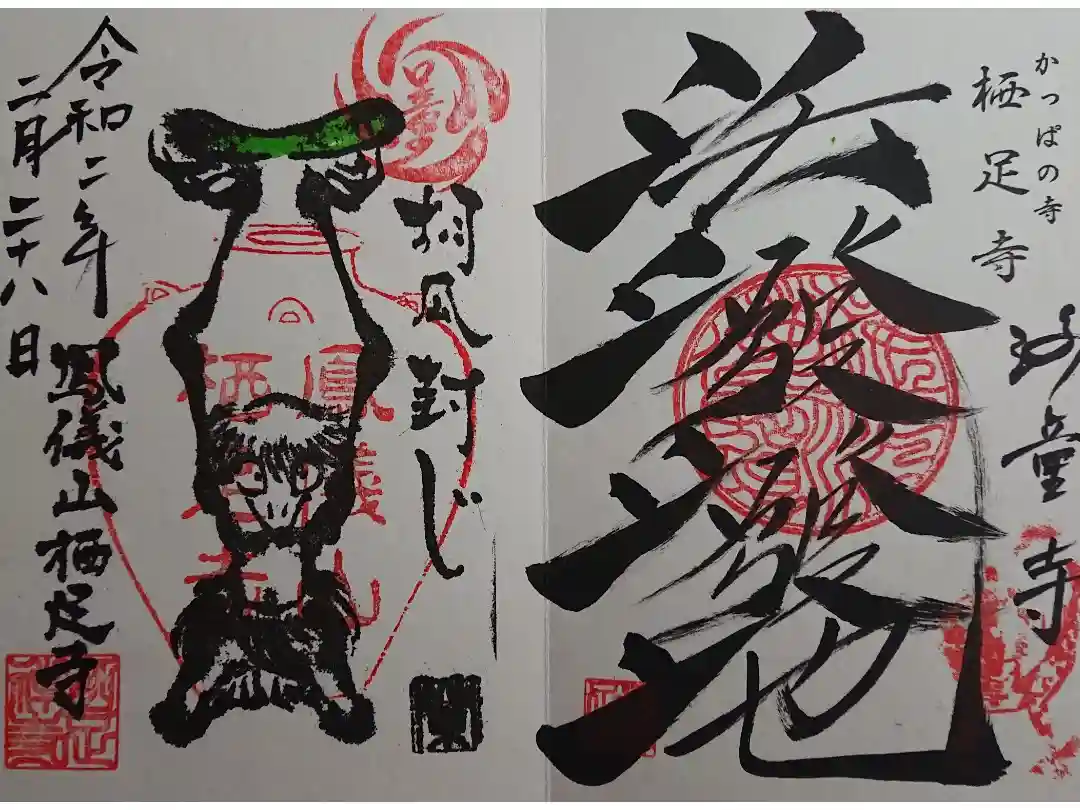 かっぱの寺
栖足寺
河童寺
活潑潑地
胡瓜封じ
鳳儀山
栖足寺
鳳儀山栖足寺
令和二年
二月二十八日